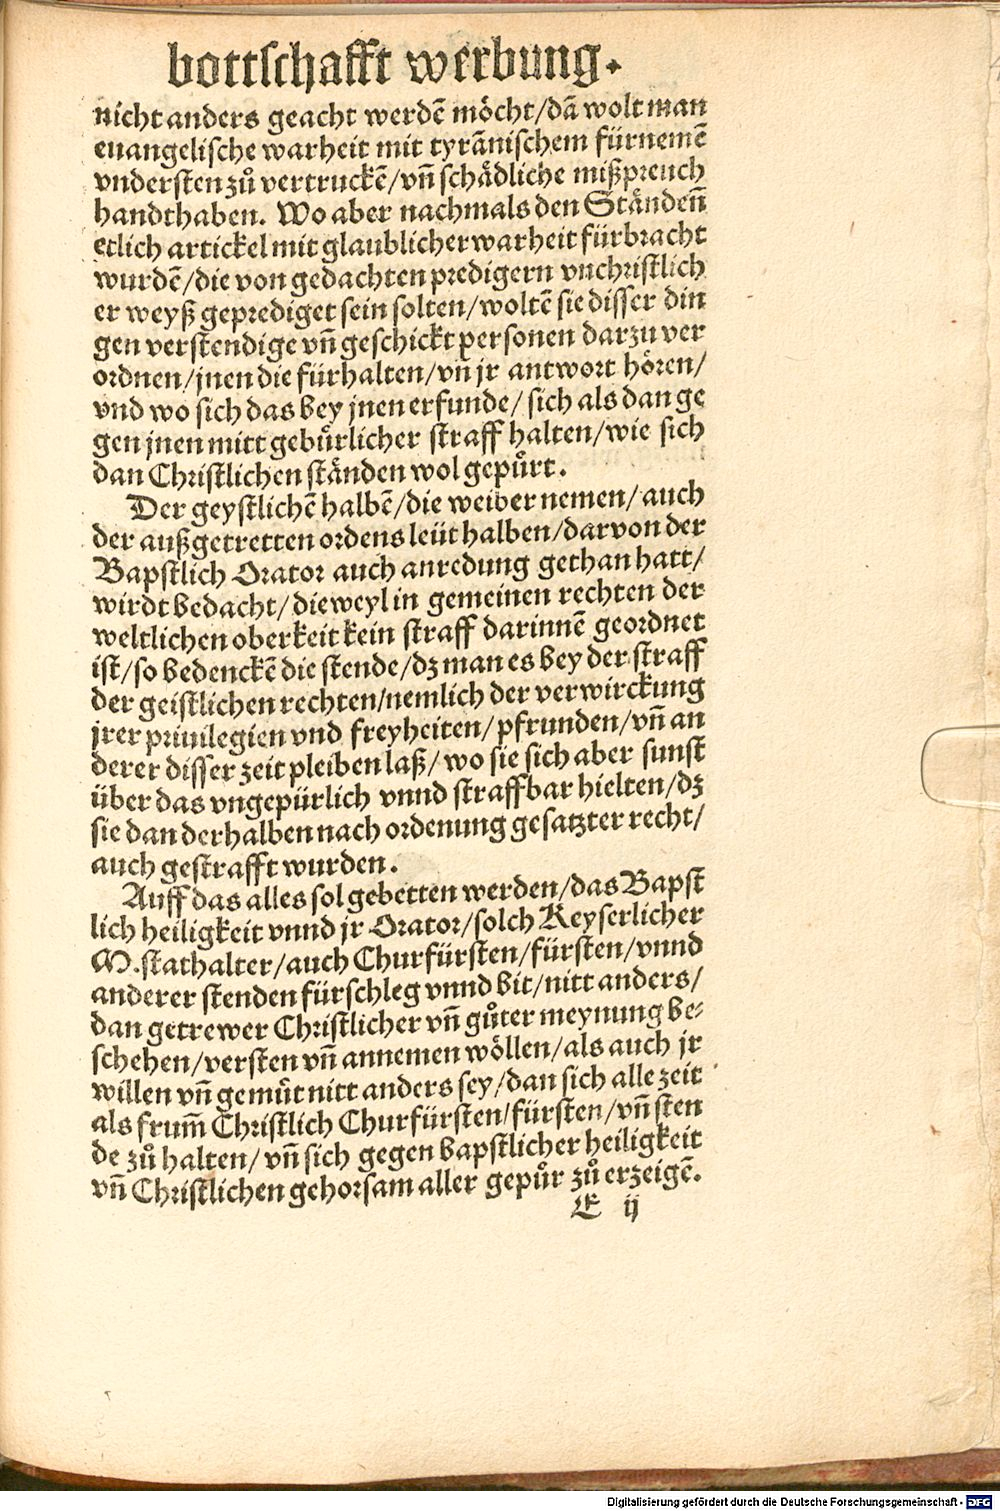 bottschafft werbung.
nicht anders geacht werdē möcht/dā wolt man
euangelische warheit mit tyrānischem fürnemē
vndersten zů vertruckē/vñ schädliche mißpreuch
handthaben. Wo aber nachmals den Ständeñ
etlich artickel mit glaublicher warheit fürbracht
wurdē/die von gedachten predigern vnchristlich
er weyß geprediget sein solten/woltē sie disser din
gen verstendige vñ geschickt personen darzu ver
ordnen/jnen die fürhalten/vñ jr antwort hören/
vnd wo sich das bey jnen erfunde/sich als dan ge
gen jnen mitt gebůrlicher straff halten/wie sich
dan Christlichen ständen wol gepůrt.
Der geystlichē halbē/die weiber nemen/auch
der außgetretten ordens leüt halben/darvon der
Bapstlich Orator auch anredung gethan hatt/
wirdt bedacht/die weyl in gemeinen rechten der
weltlichen oberkeit kein straff darinnē geordnet
ist/so bedenckē die stende/dz man es bey der straff
der geistlichen rechten/nemlich der verwirckung
jrer priuilegien vnd freyheiten/pfrunden/vñ an
derer disser zeit pleiben laß/wo sie sich aber sunst
über das vngepürlich vnnd straffbar hielten/dz
sie dan derhalben nach ordenung gesatzter recht/
auch gestrafft wurden.
Auff das alles sol gebetten werden/das Bapst
lich heiligkeit vnnd jr Orator/solch Keyserlicher
M. stathalter/auch Churfürsten/fürsten/vnnd
anderer stenden fürschleg vnnd bit/nitt anders/
dan getrewer Christlicher vñ gůter meynung be⸗
schehen/versten vñ annemen wöllen/als auch jr
willen vñ gemůt nitt anders sey/dan sich alle zeit
als frum̄ Christlich Churfürsten/fürsten/vñ sten
de zů halten/vñ sich gegen bapstlicher heiligkeit
vñ Christlichen gehorsam aller gepůr zů erzeigē.
E ij
Digitalisierung gefördert durch die Deutsche Forschungsgemeinschaft - DFG